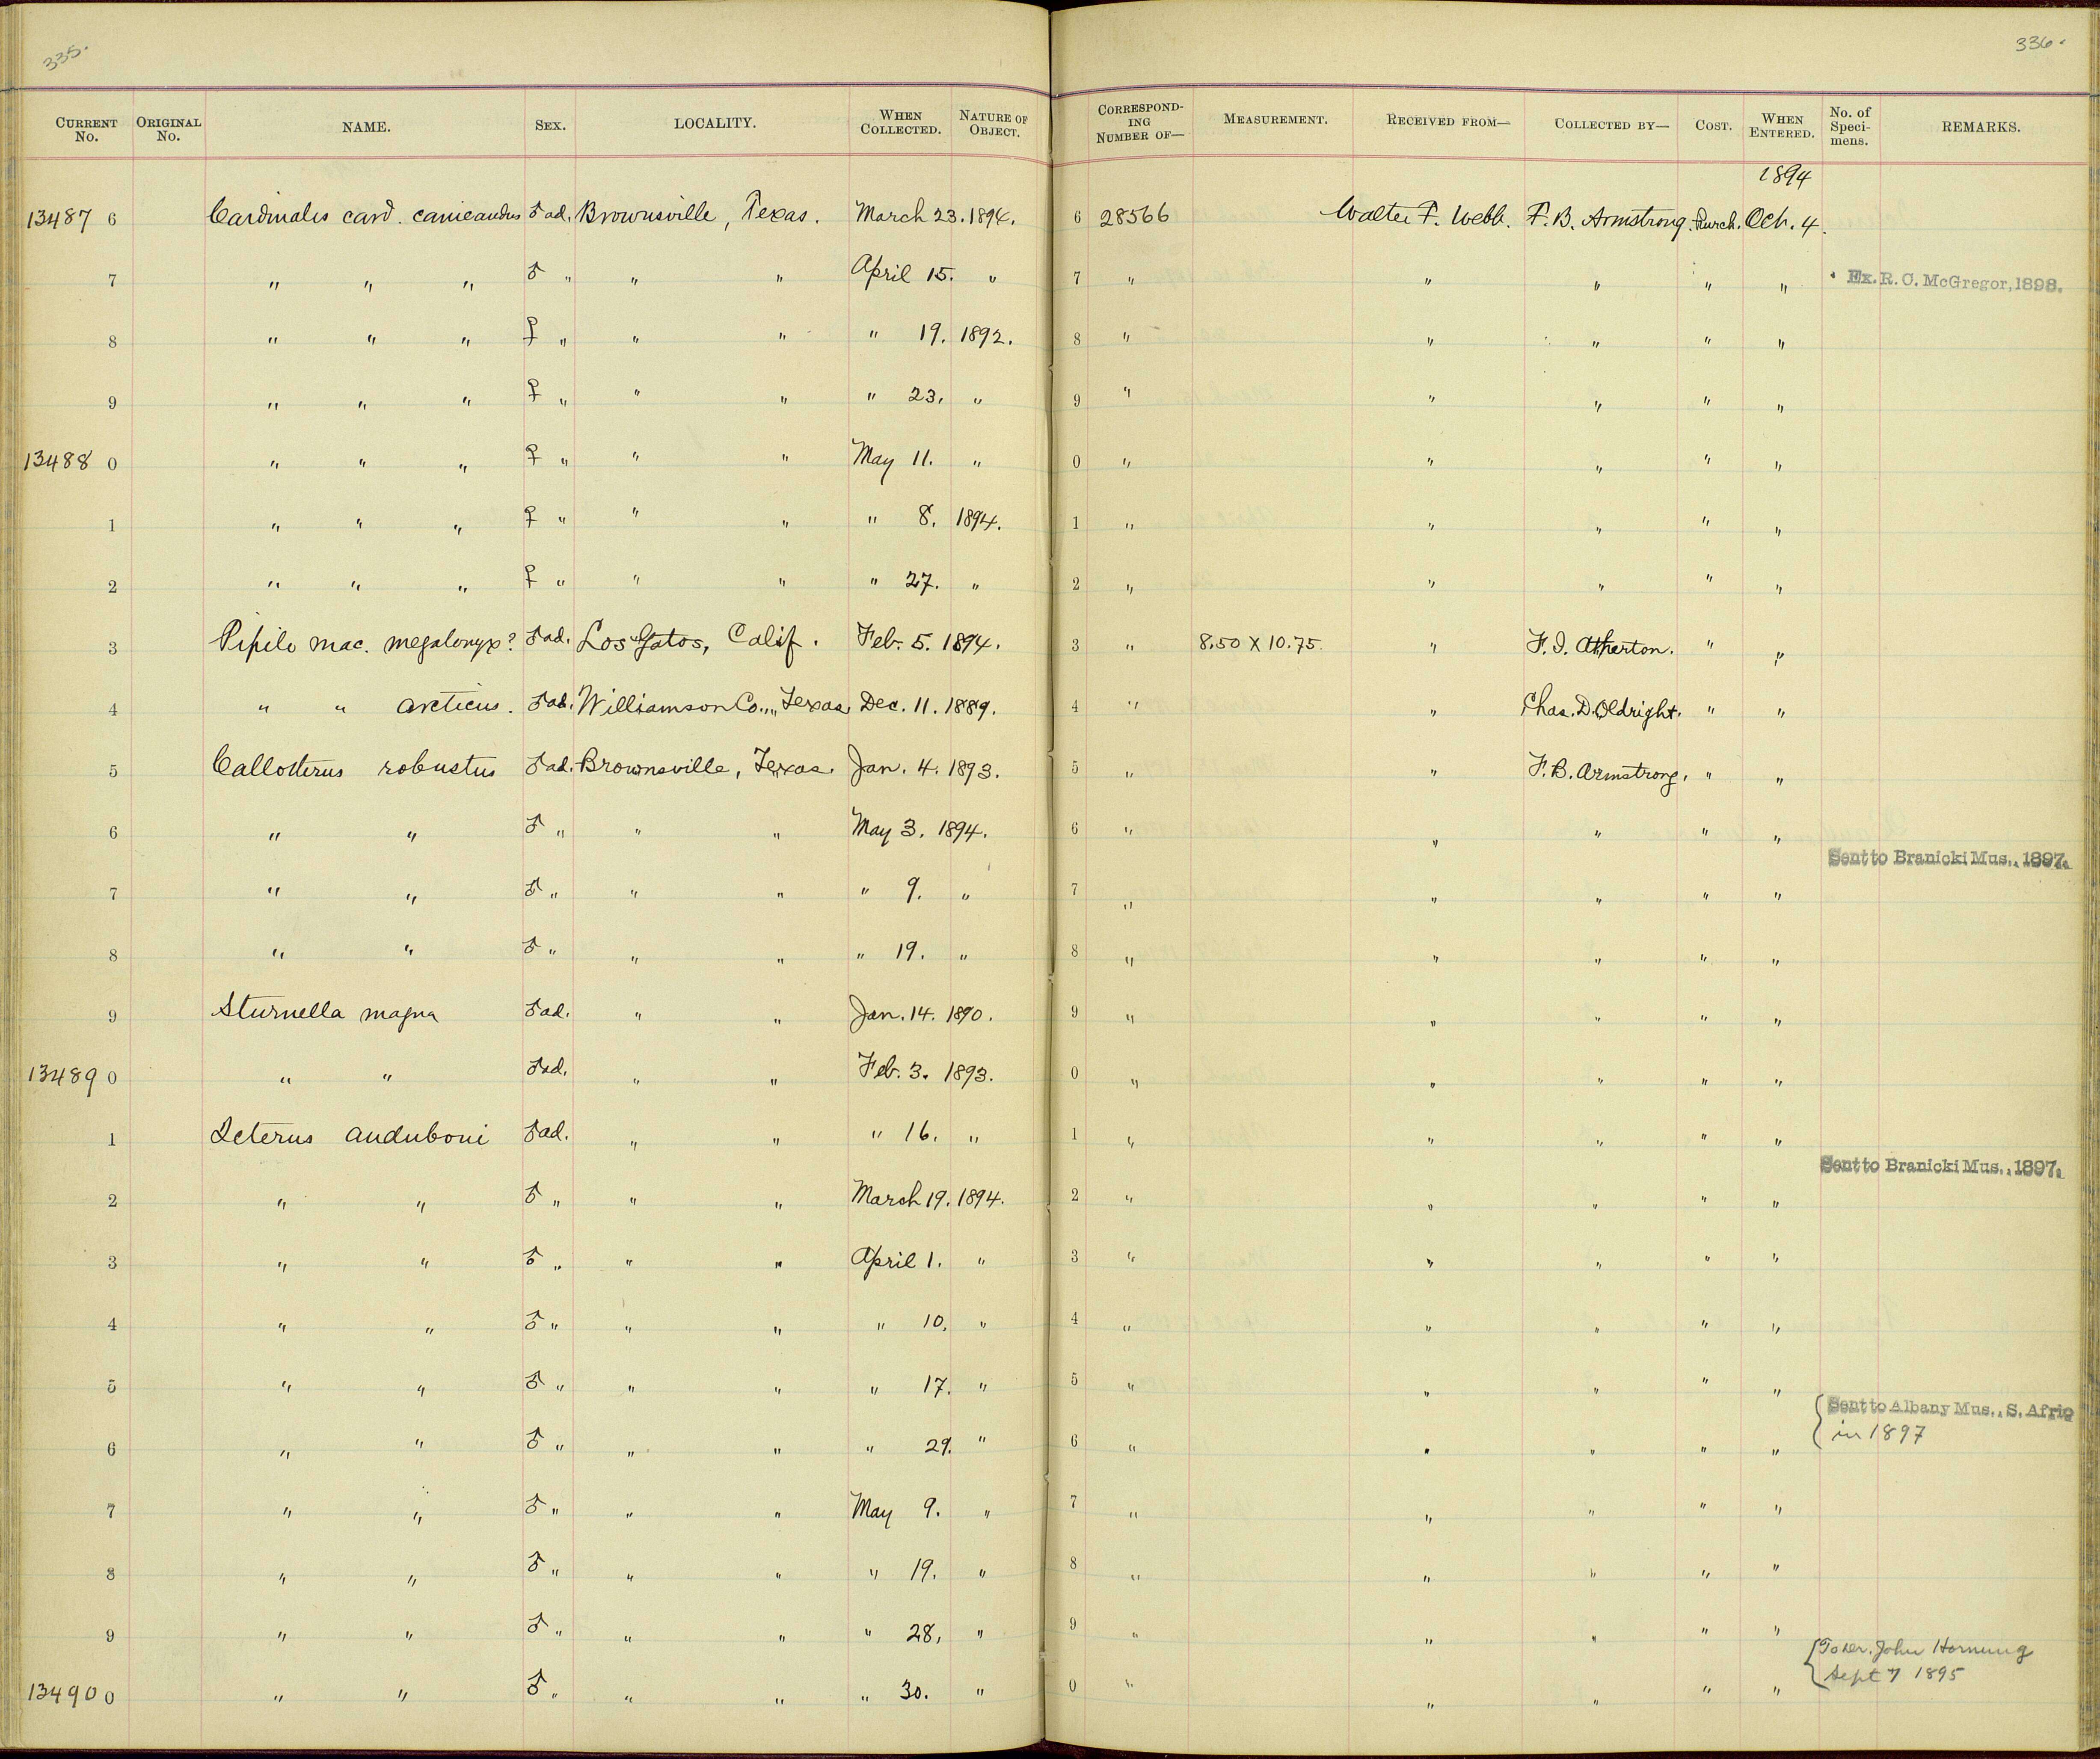 335.
336.
CURRENT No. ORIGINAL No. NAME. SEX. LOCALITY. WHEN COLLECTED. NATURE OF OBJECT. CORRESPONDING NUMBER OF— MEASUREMENT. RECEIVED FROM— COLLECTED BY— COST. WHEN ENTERED. No. of Speci-mens. REMARKS.
1894
13487 6 Cardinalis card. canicaudus ♂ ad. Brownsville, Texas. March 23. 1894. 6 28566 Walter F. Webb. F. B. Armstrong. Purch. Oct. 4.
7 " " " ♂ " " " April 15. " 7 " " " " " Ex. R. C. McGregor, 1898.
8 " " " ♀ " " " " 19. 1892. 8 " " " " "
9 " " " ♀ " " " " 23. " 9 " " " " "
13488 0 " " " ♀ " " " May 11. " 0 " " " " "
1 " " " ♀ " " " " 8. 1894. 1 " " " " "
2 " " " ♀ " " " " 27. " 2 " " " " "
3 Pipilo mac. megalonyx? ♂ ad. Los Gatos, Calif. Feb. 5. 1894. 3 " 8.50 X 10.75. " F. I. Atherton. " "
4 " " arcticus. ♂ ad. Williamson Co., Texas Dec. 11. 1889. 4 " " Chas. D. Oldright. " "
5 Callotterus robustus ♂ ad. Brownsville, Texas. Jan. 4. 1893. 5 " " F. B. Armstrong. " "
6 " " ♂ " " " May 3. 1894. 6 " " " " "
Sent to Branicki Mus., 1897.
7 " " ♂ " " " " 9. " 7 " " " " "
8 " " ♂ " " " " 19. " 8 " " " " "
9 Sturnella magna ♂ ad. " " Jan. 14. 1890. 9 " " " " "
13489 0 " " ♂ ad. " " Feb. 3. 1893. 0 " " " " "
1 Icterus auduboni ♂ ad. " " " 16. " 1 " " " " "
Sent to Branicki Mus., 1897.
2 " " ♂ " " " March 19. 1894. 2 " " " " "
3 " " ♂ " " " April 1. " 3 " " " " "
4 " " ♂ " " " " 10. " 4 " " " " "
5 " " ♂ " " " " 17. " 5 " " " " "
Sent to Albany Mus., S. Afric
6 " " ♂ " " " " 29. " 6 " " " " " in 1897
7 " " ♂ " " " May 9. " 7 " " " " "
8 " " ♂ " " " " 19. " 8 " " " " "
9 " " ♂ " " " " 28. " 9 " " " " "
John Hornung
Sept 7 1895
13490 0 " " ♂ " " " " 30. " 0 " " " " "